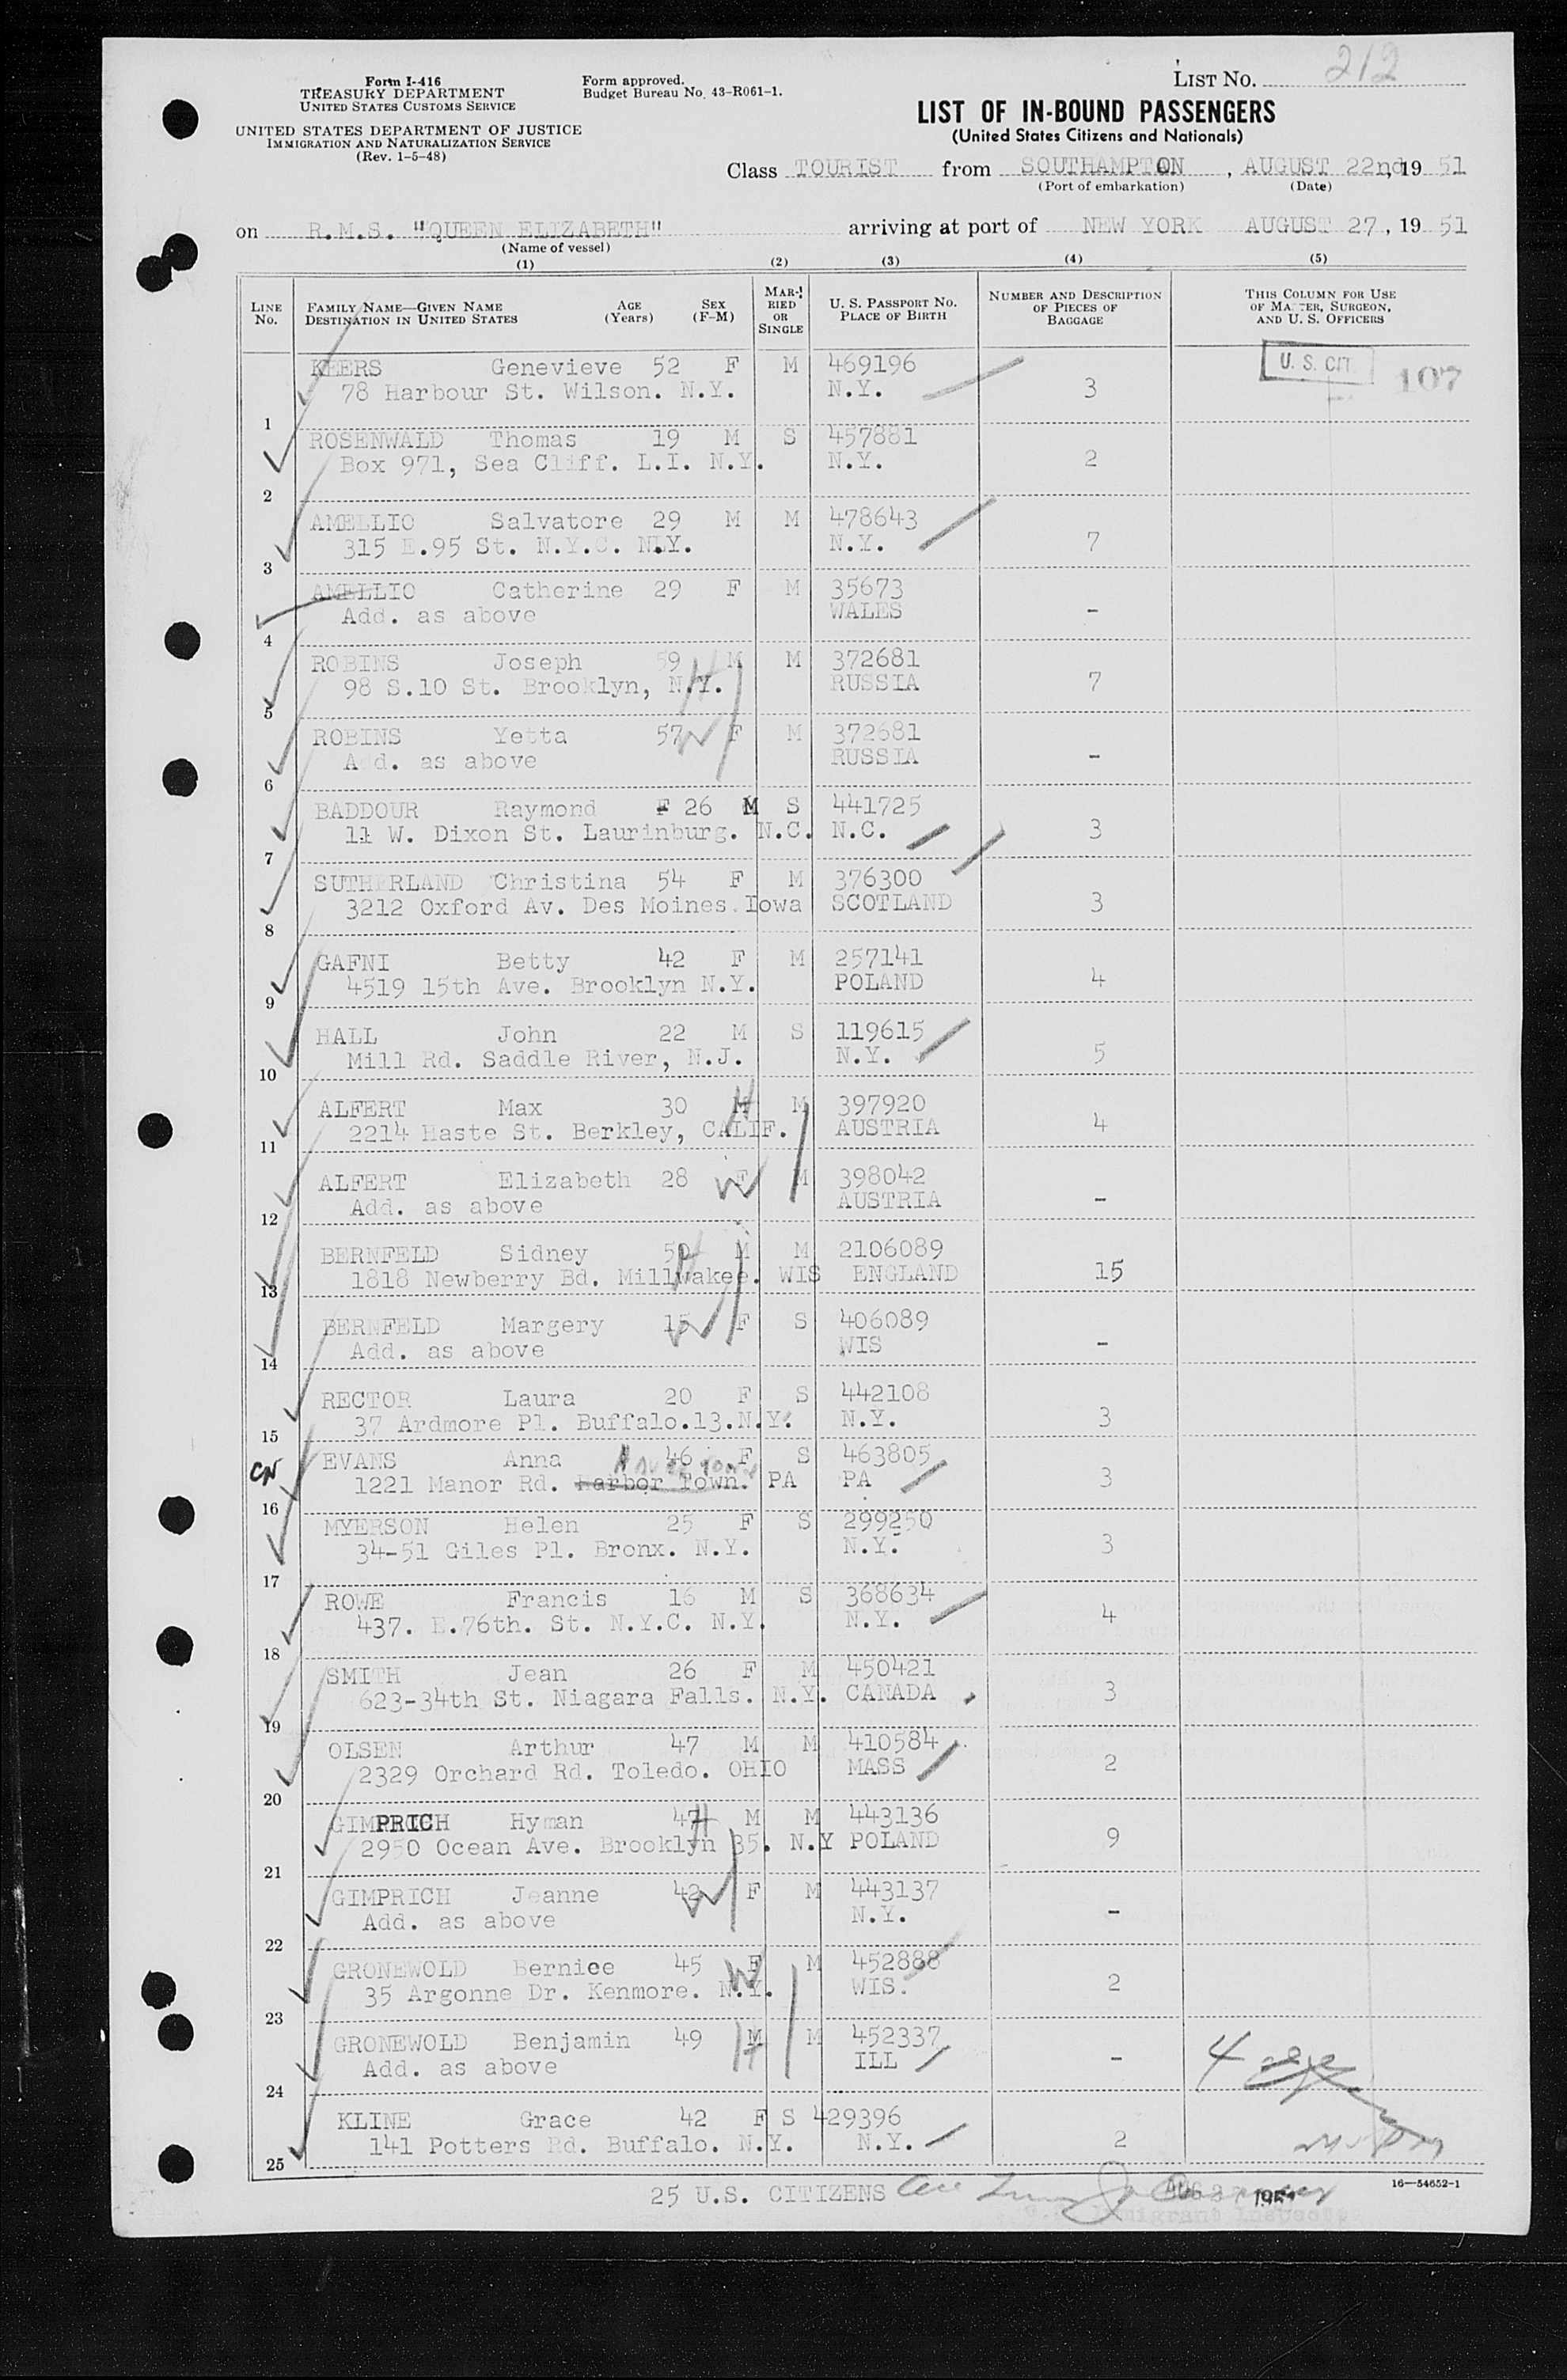 Form I-416
TREASURY DEPARTMENT
UNITED STATES CUSTOMS SERVICE
UNITED STATES DEPARTMENT OF JUSTICE
IMMIGRATION AND NATURALIZATION SERVICE
(Rev. 1-5-48)
Form approved.
Budget Bureau No. 43-R061-1.
LIST NO. 212
LIST OF IN-BOUND PASSENGERS
(United States Citizens and Nationals)
Class TOURIST from SOUTHAMPTON, AUGUST 22nd, 19 51
(Port of embarkation) (Date)
on R.M.S. "QUEEN ELIZABETH" arriving at port of NEW YORK AUGUST 27, 19 51
(Name of vessel)
(1) (2) (3) (4) (5)
LINE NO. FAMILY NAME—GIVEN NAME DESTINATION IN UNITED STATES AGE (Years) SEX (F-M) MARRIED OR SINGLE U. S. PASSPORT NO. PLACE OF BIRTH NUMBER AND DESCRIPTION OF PIECES OF BAGGAGE THIS COLUMN FOR USE OF MASTER, SURGEON, AND U. S. OFFICERS
KEERS Genevieve 52 F M 469196 U. S. CIT. 107
78 Harbour St. Wilson. N.Y. N.Y. 3
1
ROSENWALD Thomas 19 M S 457881
Box 971, Sea Cliff. L.I. N.Y. N.Y. 2
2
AMELLIO Salvatore 29 M M 478643
315 E.95 St. N.Y.C. N.Y. N.Y. 7
3
AMELLIO Catherine 29 F M 35673
Add. as above WALES -
4
ROBINS Joseph 59 M M 372681
98 S.10 St. Brooklyn, N.Y. RUSSIA 7
5
ROBINS Yetta 57 F M 372681
Add. as above RUSSIA -
6
BADDOUR Raymond F 26 M S 441725
11 W. Dixon St. Laurinburg. N.C. N.C. 3
7
SUTHERLAND Christina 54 F M 376300
3212 Oxford Av. Des Moines.Iowa SCOTLAND 3
8
GAFNI Betty 42 F M 257141
4519 15th Ave. Brooklyn N.Y. POLAND 4
9
HALL John 22 M S 119615
Mill Rd. Saddle River, N.J. N.Y. 5
10
ALFERT Max 30 M M 397920
2214 Haste St. Berkley, CALIF. AUSTRIA 4
11
ALFERT Elizabeth 28 F M 398042
Add. as above AUSTRIA -
12
BERNFELD Sidney 50 M M 2106089
1818 Newberry Bd. Millwakee. WIS ENGLAND 15
13
BERNFELD Margery 15 F S 406089
Add. as above WIS -
14
RECTOR Laura 20 F S 442108
37 Ardmore Pl. Buffalo.13.N.Y. N.Y. 3
15
CN EVANS Anna 46 F S 463805
1221 Manor Rd. Harbor Town. PA PA 3
16
MYERSON Helen 25 F S 299250
34-51 Giles Pl. Bronx. N.Y. N.Y. 3
17
ROWE Francis 16 M S 368634
437. E.76th. St. N.Y.C. N.Y. N.Y. 4
18
SMITH Jean 26 F M 450421
623-34th St. Niagara Falls. N.Y. CANADA 3
19
OLSEN Arthur 47 M M 410584
2329 Orchard Rd. Toledo. OHIO MASS 2
20
GIMPRICH Hyman 47 M M 443136
2950 Ocean Ave. Brooklyn 35. N.Y POLAND 9
21
GIMPRICH Jeanne 42 F M 443137
Add. as above N.Y. -
22
GRONEWOLD Bernice 45 F M 452888
35 Argonne Dr. Kenmore. N.Y. WIS. 2
23
GRONEWOLD Benjamin 49 M M 452337
Add. as above ILL - 4
24
KLINE Grace 42 F S 429396
141 Potters Rd. Buffalo. N.Y. N.Y. 2
25
25 U.S. CITIZENS AUG 27 1951
16—54652-1
Immigrant Inspector